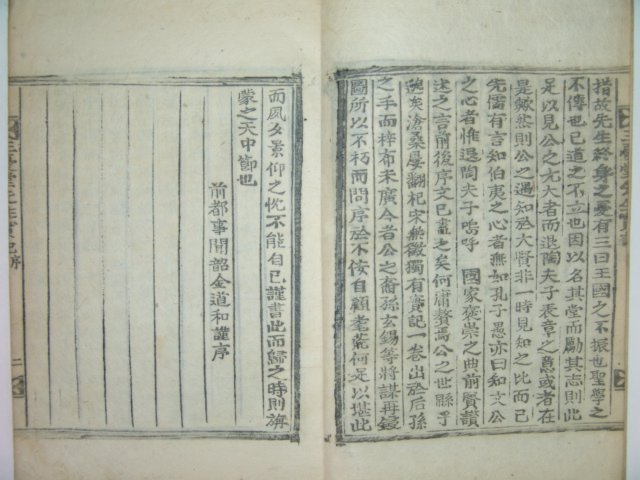 措故先生終身之憂有三曰王國之不振也聖學之
不傳也己道之不立也因以名其堂而勵其志則此
足以見公之尤大者而退陶夫子表章之意或者在
是歟然則公之遇知於大賢非一時見知之比而已
先儒有言知伯夷之心者無如孔子愚亦曰知文公
之心者惟退陶夫子嗚呼 國家褒崇之典前賢讚
述之言前後序文已盡之矣何庸贅焉公之世縣乎
邈矣滄桑屢翻杞宋無徵獨有實記一卷出於后孫
之手而梓布未廣今者公之裔孫玄錫等將謀再鋟
圖所以不朽而問序於不侫自顧耄荒何足以堪此
而夙夕景仰之忱不能自已謹書此而歸之時則旃
蒙之天中節也
前都事聞韶金道和謹序